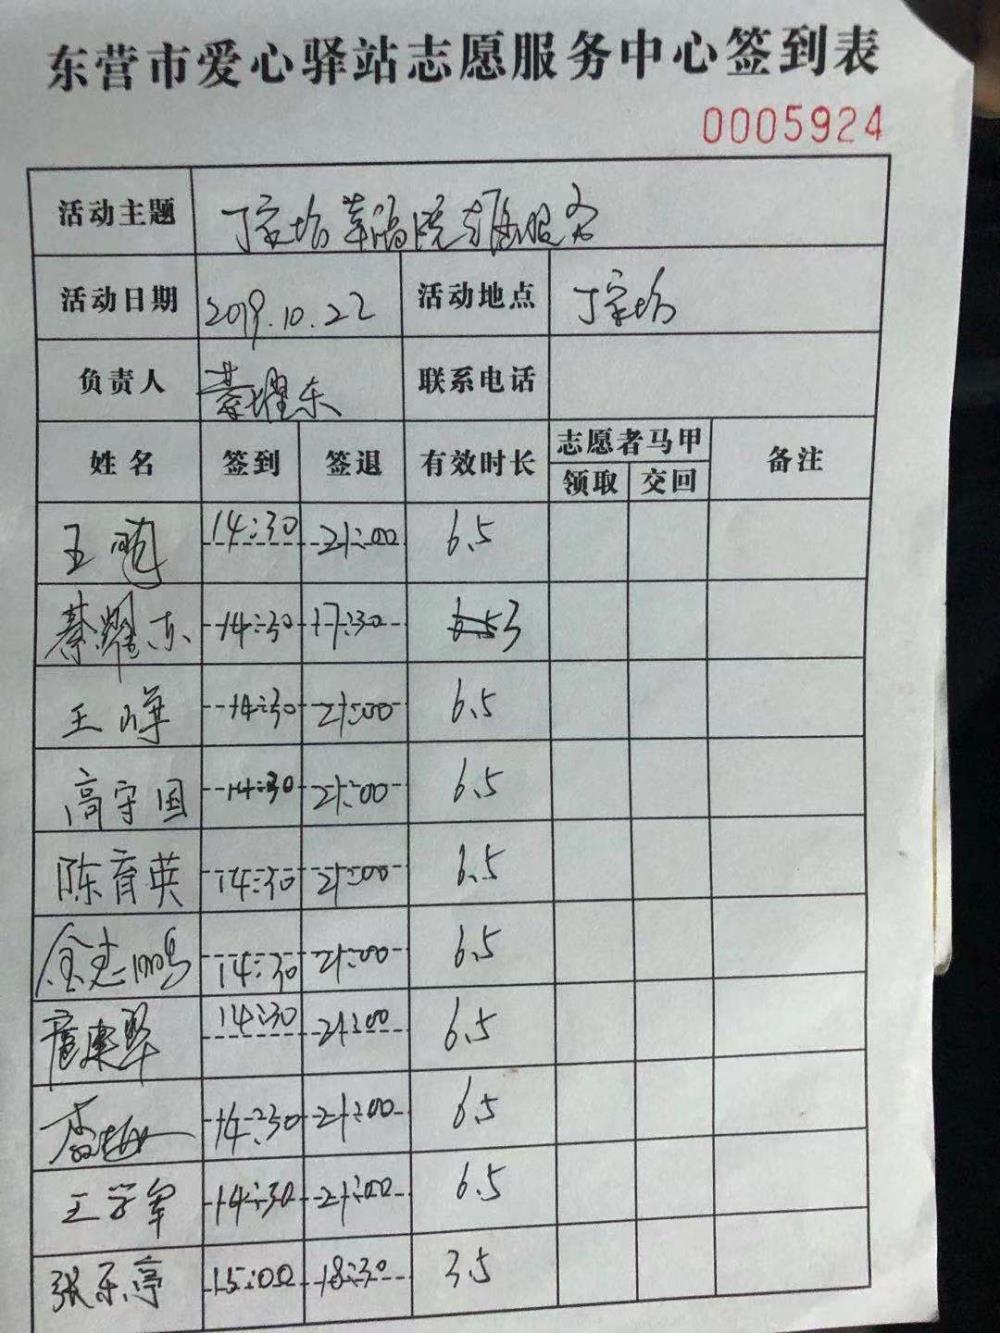 东营市爱心驿站志愿服务中心签到表
0005924
活动主题 丁家坊幸福院志愿服务
活动日期 2019.10.22 活动地点 丁家坊
负责人 蔡耀东 联系电话
姓名 签到 签退 有效时长 志愿者马甲 备注
领取 交回
王 14:30 21:00 6.5
蔡耀东 14:30 17:30 3
王峰 14:30 21:00 6.5
高守国 14:30 21:00 6.5
陈育英 14:30 21:00 6.5
金志鹏 14:30 21:00 6.5
14:30 21:00 6.5
14:30 21:00 6.5
王学军 14:30 21:00 6.5
张乐亭 15:00 18:30 3.5